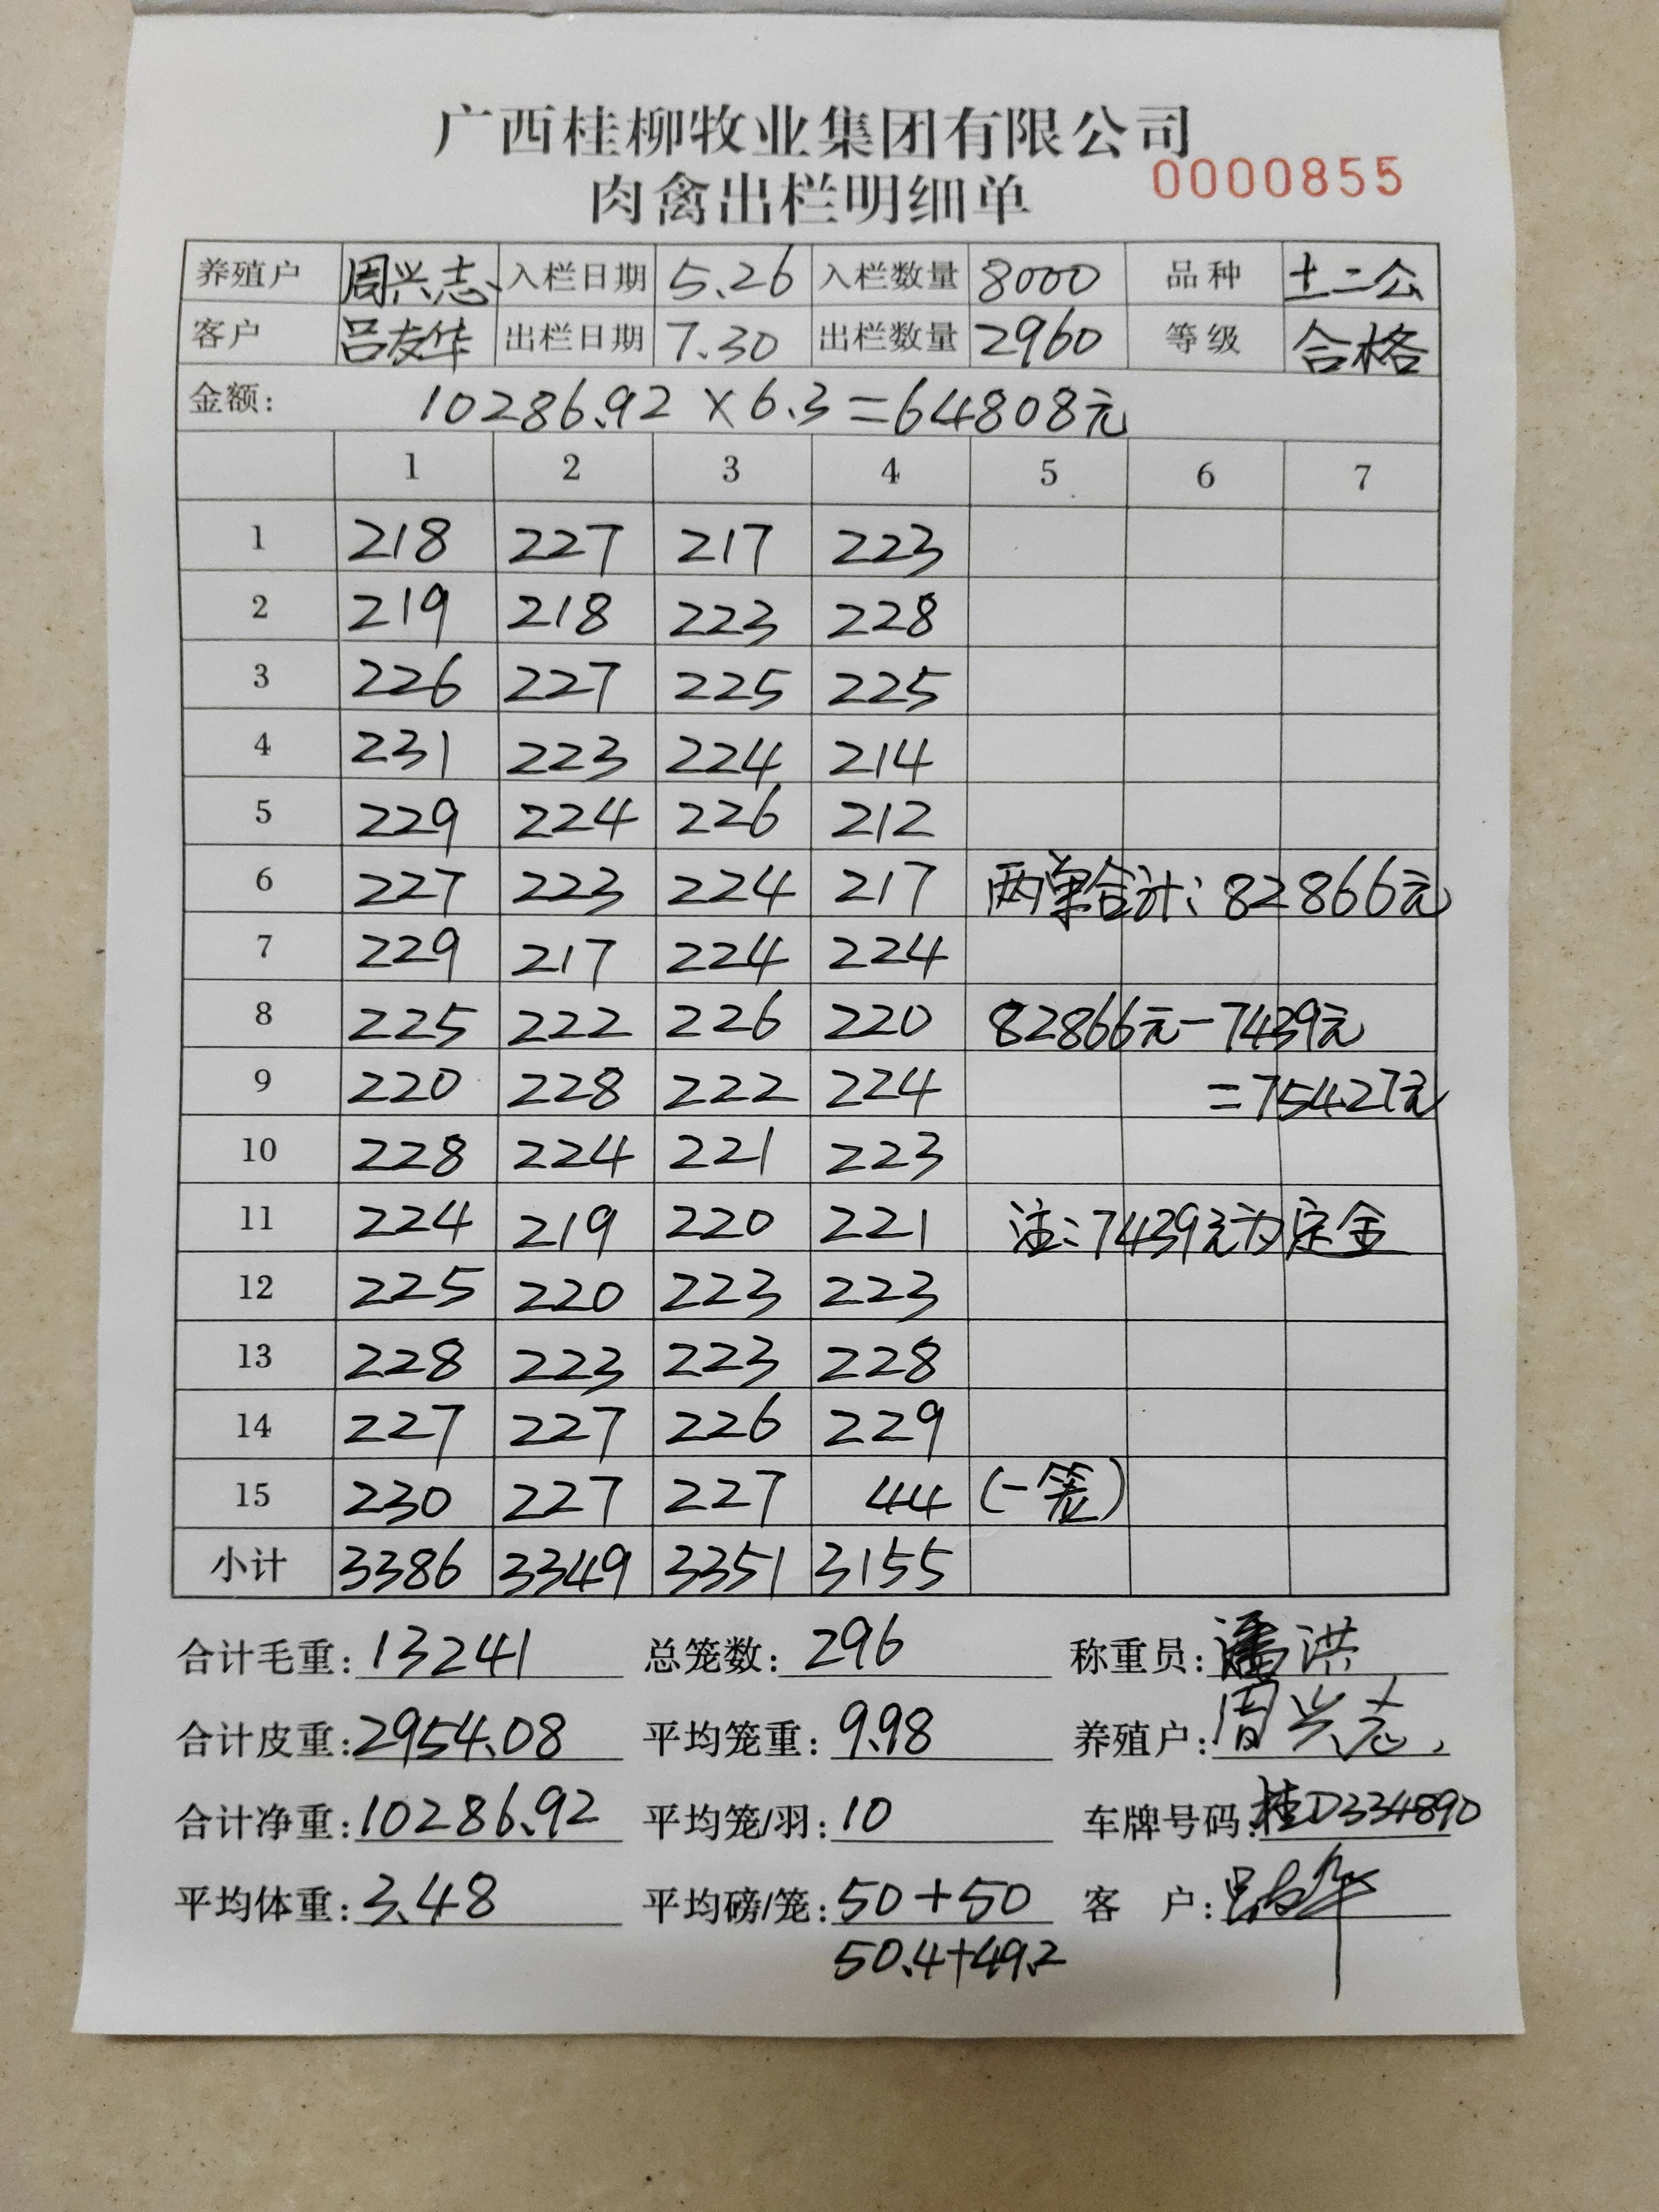 广西桂柳牧业集团有限公司
肉禽出栏明细单 0000855
养殖户 周兴志 入栏日期 5.26 入栏数量 8000 品种 土二公
客户 吕友华 出栏日期 7.30 出栏数量 2960 等级 合格
金额: 10286.92×6.3=64808元
1 2 3 4 5 6 7
1 218 227 217 223
2 219 218 223 228
3 226 227 225 225
4 231 223 224 214
5 229 224 226 212
6 227 223 224 217 两单合计:82866元
7 229 217 224 224
8 225 222 226 220 82866元-7439元
9 220 228 222 224 =75427元
10 228 224 221 223
11 224 219 220 221 注:7439元为定金
12 225 220 223 223
13 228 223 223 228
14 227 227 226 229
15 230 227 227 44 (一笼)
小计 3386 3349 3351 3155
合计毛重:13241 总笼数:296 称重员:潘洪
合计皮重:2954.08 平均笼重:9.98 养殖户:周兴志
合计净重:10286.92 平均笼/羽:10 车牌号码:桂D334890
平均体重:3.48 平均磅/笼:50+50 客 户:吕友华
50.4+49.2